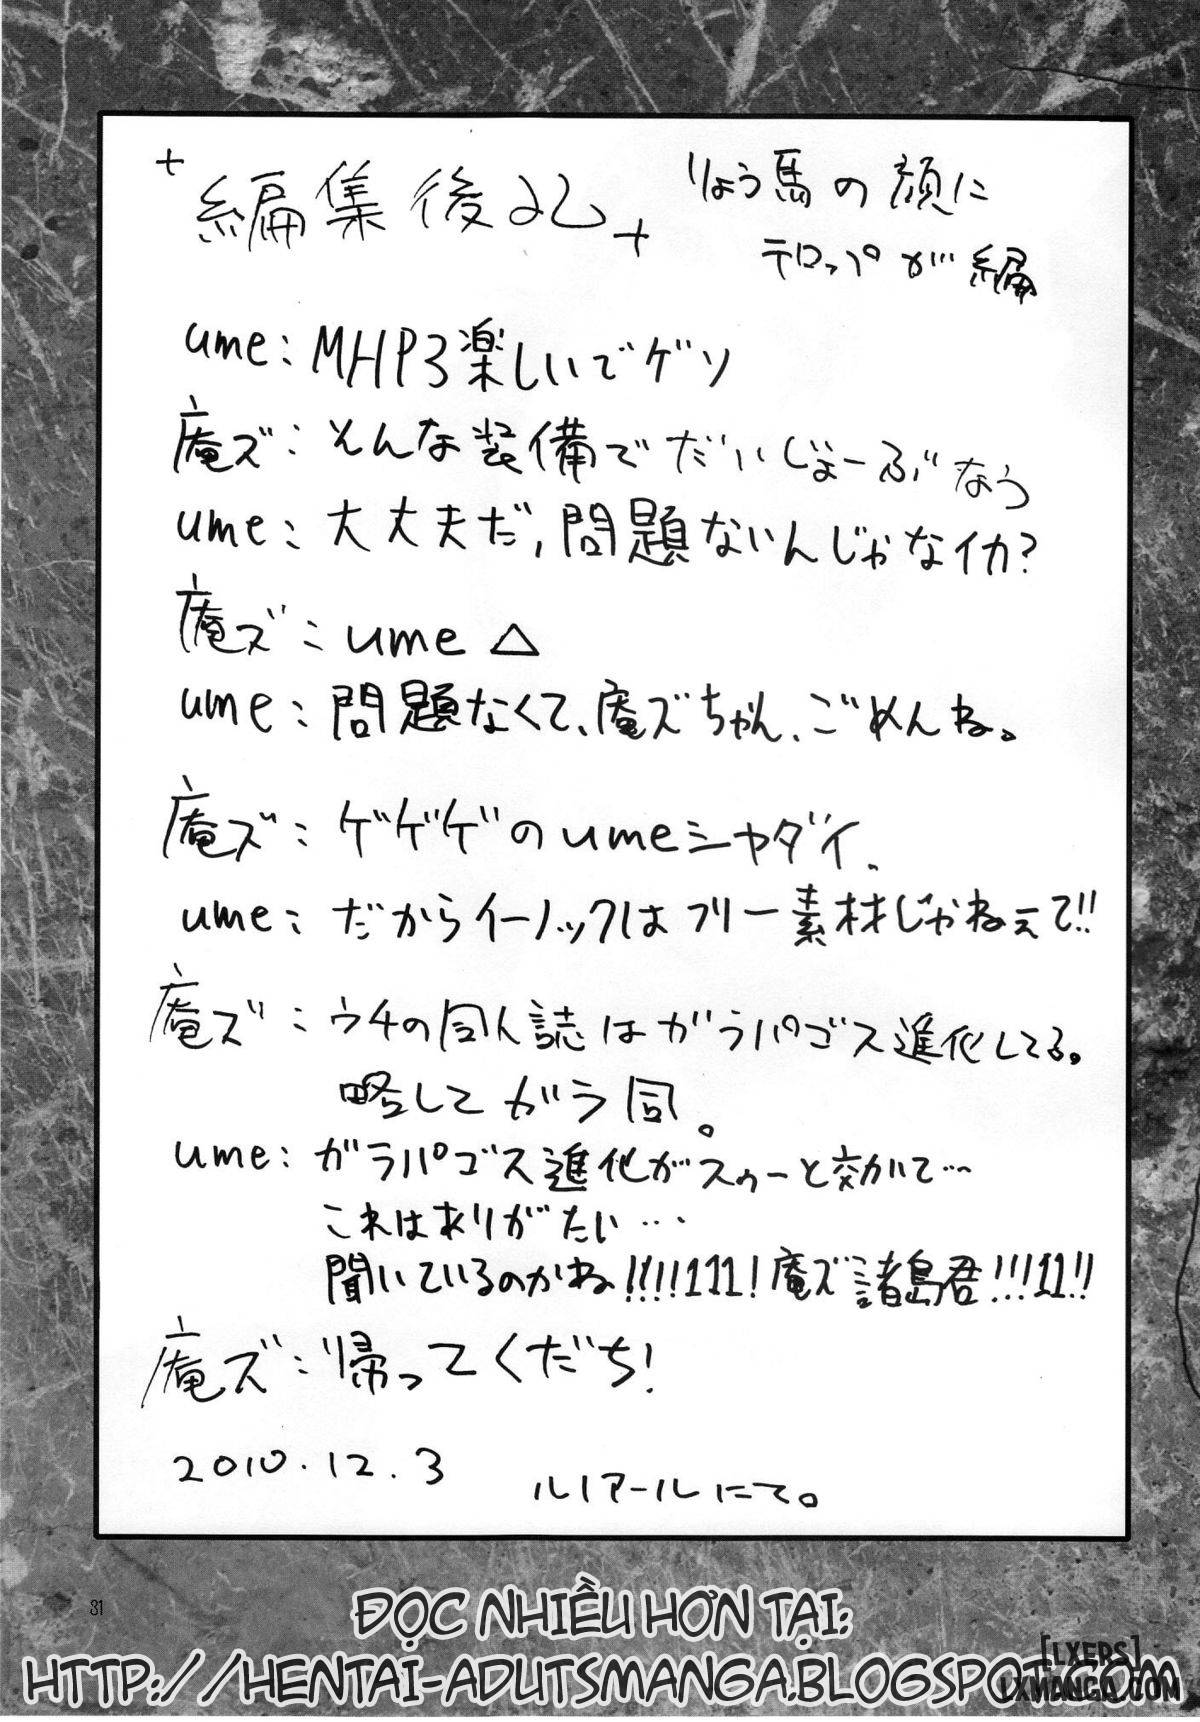 +編集後記+
りょう馬の顔に
テロップが編
ume:MHP3楽しいでゲソ
庵ズ:そんな装備でだいじょーぶなう
ume:大丈夫だ,問題ないんじゃなイカ?
庵ズ:ume△
ume:問題なくて、庵ズちゃん、ごめんね。
庵ズ:ゲゲゲのumeシャダイ.
ume:だからイーノックはフリー素材じゃねぇて!!
庵ズ:ウチの同人誌はガラパゴス進化してる。
略してガラ同。
ume:ガラパゴス進化がスゥーと効いて…
これはありがたい…
聞いているのかね!!!!111!庵ズ諸島君!!!11!!
庵ズ:帰ってくだち!
2010.12.3
ルノアールにて。
31
ĐỌC NHIỀU HƠN TẠI:
HTTP://HENTAI-ADUTSMANGA.BLOGSPOT.COM
[LXERS]
LXMANGA.COM